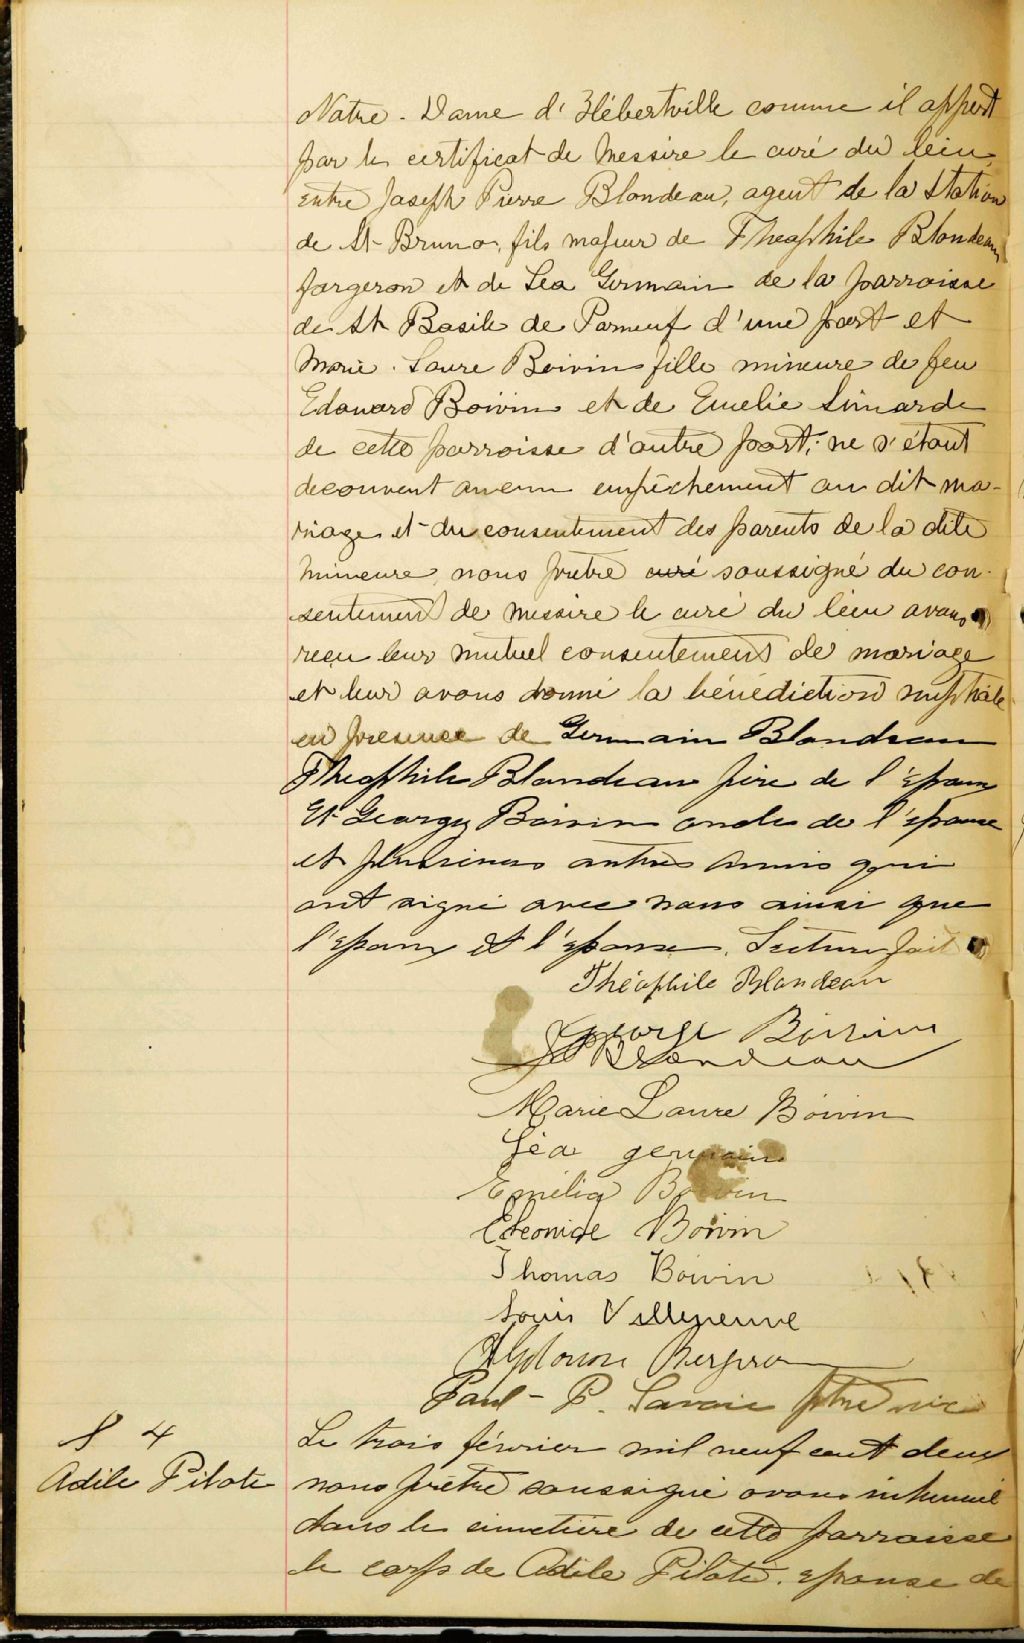 Notre-Dame d'Hébertville comme il appert
par le certificat de Messire le curé du lieu,
entre Joseph Pierre Blondeau, agent de la Station
de St Bruno, fils majeur de Theophile Blondeau
forgeron et de Léa Germain de la parroisse
de St Basile de Porneuf d'une part et
Marie-Laure Boivin fille mineure de feu
Edouard Boivin et de Emelie Simarde
de cette parroisse d'autre part; ne s'étant
decouvert aucun empêchement au dit ma-
riage et du consentement des parents de la dite
mineure, nous prêtre curé soussigné du con-
sentement de messire le curé du lieu avons
reçu leur mutuel consentement de mariage
et leur avons donné la bénédiction nuptiale
en présence de Germain Blondeau
Theophile Blondeau père de l'Epoux
Et George Boivin oncle de l'épouse
et plusieurs autres amis qui
ont signé avec nous ainsi que
l'Epoux et l'épouse. Lecture fait
Théophile Blondeau
George Boivin
J P Blondeau
Marie Laure Boivin
Léa germain
Emélia Boivin
Eléonide Boivin
Thomas Boivin
Louis Villeneuve
Bergeron
Paul-P. Savoie ptre
S 4
Adile Pilote
Le trois février mil neuf cent deux
nous prêtre soussigné avons inhumé
dans le cimetière de cette parroisse
le corps de Adile Pilote, epouse de